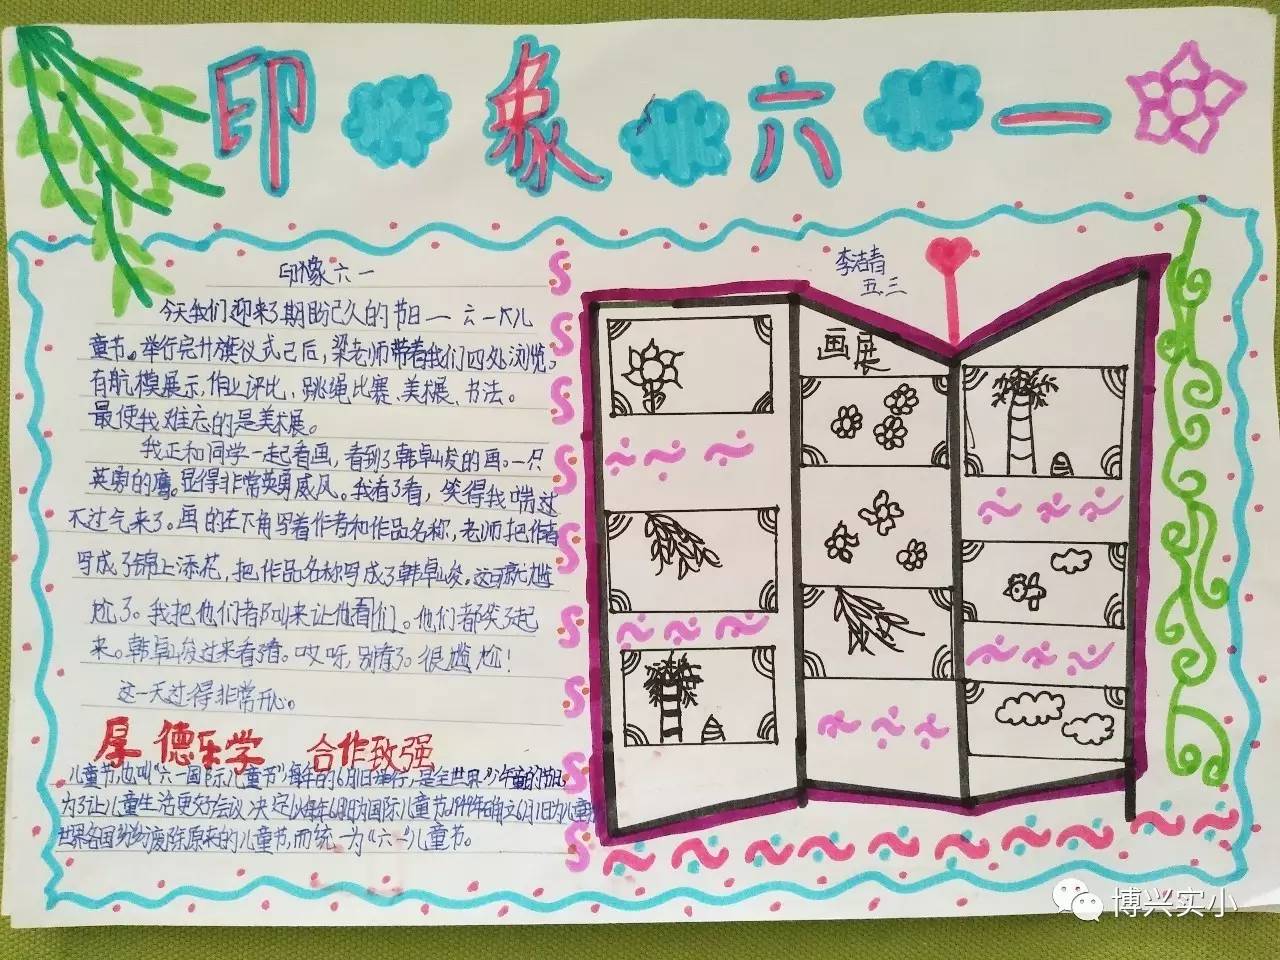 印象六一
印像六一
今天我们迎来了期盼已久的节日一六一大儿
童节。举行完升旗仪式己后，梁老师带着我们四处浏览。
有航模展示，作业评比，跳绳比赛、美术展、书法。
最使我难忘的是美术展。
我正和同学一起看画，看到了韩卓峻的画。一只
英勇的鹰。显得非常英勇威风。我看了看，笑得我喘过
不过气来了。画的左下角写着作者和作品名称，老师把作者
写成了锦上添花，把作品名称写成了韩卓峻。这可就尴
尬了。我把他们都叫来让他看们。他们都笑了起
来。韩卓峻过来看了看。哎呀，别看了。很尴尬！
这一天过得非常开心。
厚德乐学 合作致强
儿童节，也叫“六一国际儿童节”每年的6月1日举行，是全世界少年儿童的节日
为了让儿童生活更好会议决定以每年6月1日为国际儿童节。1949年确立6月1日为儿童节
世界各国纷纷废除原来的儿童节，而统一为“六一”儿童节。
李洁青
五.三
画展
博兴实小